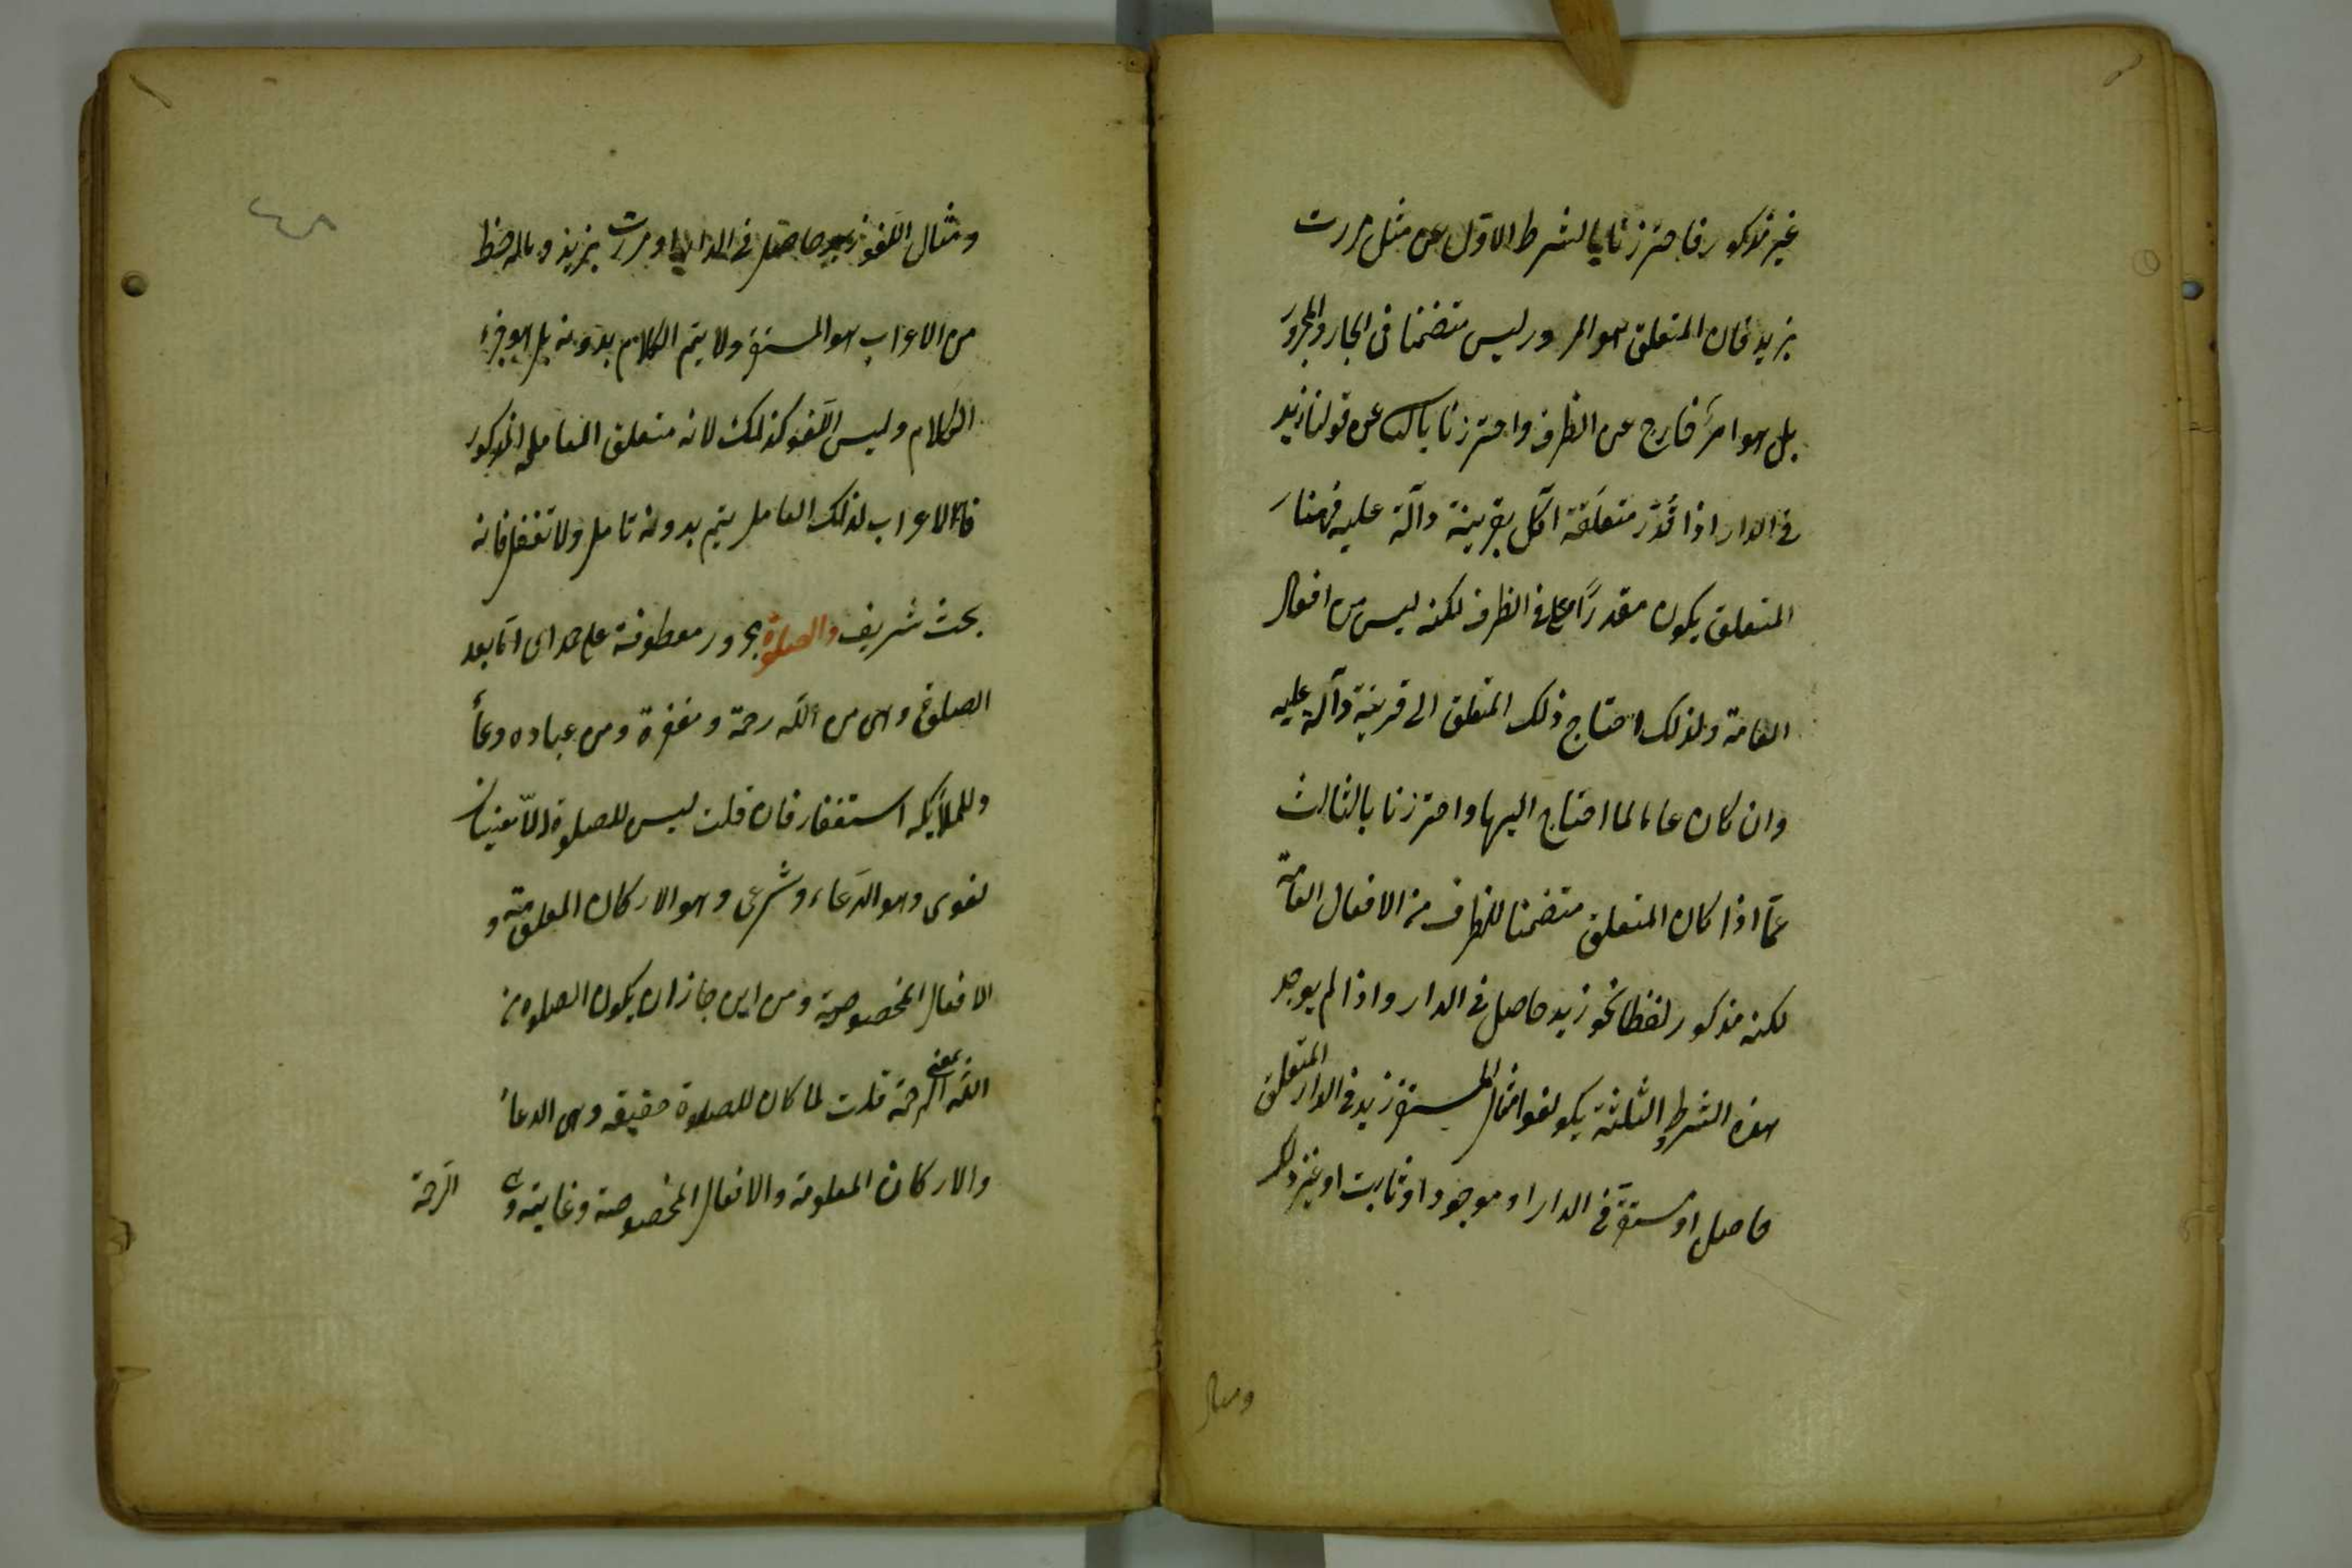 غير مذكور فاحترزنا بالشرط الاول عن مثل مررت
بزيد فان المتعلق هو المرور ليس متضمنا فى الجار والمجرور
بل هو امر خارج عن الظرف واحترزنا بالثانى عن قولنا زيد
فى الدار اذا قدّر متعلقه اكل بقرينة دآلة عليه فههنا
المتعلق يكون مقدرًا فى الظرف لكنه ليس من افعال
العامة ولذلك احتاج ذلك المتعلق الى قرينة دآلة عليه
وان كان عاما لما احتاج اليها واحترزنا بالثالث
عمّا اذا كان المتعلق متضمنا للظرف من الافعال العامة
لكنه مذكور لفظا نحو زيد حاصل فى الدار واذا لم يوجد
هذه الشروط الثلثة يكو لغوا مثال المستقر زيد فى الدار المتعلق
حاصل او مستقر فى الدار او موجود او ثابت او غير ذلك
ومثال
ومثال اللغو زيد حاصل فى الدار او مررت بزيد وماله حظ
من الاعراب هو المستقر ولا يتم الكلام بدونه بل هو جزء
الكلام وليس اللغو كذلك لانه متعلق العامله المذكور
فا الاعراب لذلك العامل يتم بدونه تامل ولا تغفل فانه
بحث شريف والصلوة مجرور معطوفة على حمد اى اما بعد
الصلوة وهى من الله رحمة ومغفرة ومن عباده دعاء
وللملائكه استغفار فان قلت ليس للصلوة الا معنيان
لغوى وهو الدعاء وشرعى وهو الاركان المعلومة و
الافعال المخصوصة ومن اين جاز ان يكون الصلوة من
الله بمعنى الرحمة قلت لما كان للصلوة حقيقه وهى الدعاء
والاركان المعلومة والافعال المخصوصة وغايته وهى الرحمة